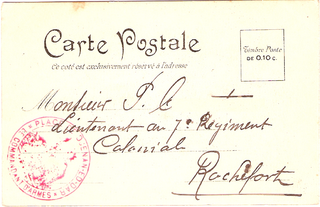 Carte Postale
Ce côté est exclusivement réservé à l'adresse
Timbre Poste
DE 0.10 c.
Monsieur P. C
Lieutenant au 7e Regiment
Colonial
Rochefort
PLACE
D'ARMES